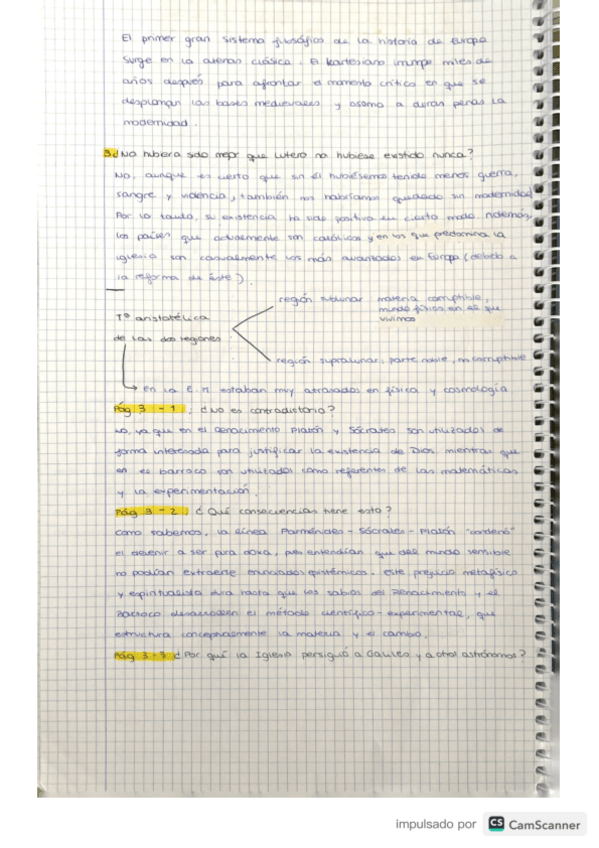 El primer gran sistema filosófico de la historia de Europa
surge en la atenas clásica. El kartesiano irrumpe miles de
años después para afrontar el momento crítico en que se
desploman las bases medievales y asoma a duras penas la
modernidad.
3. ¿No hubiera sido mejor que Lutero no hubiese existido nunca?
No, aunque es cierto que sin él hubiésemos tenido menos guerra,
sangre y violencia, también nos habríamos quedado sin modernidad
Por lo tanto, su existencia ha sido positiva en cierto modo. Además,
los países que actualmente son católicos y en los que predomina la
iglesia son casualmente los más avanzados en Europa (debido a
la reforma de éste).
región sublunar materia corruptible,
mundo físico en el que
vivimos
Tª aristotélica
de las dos regiones
región supralunar, parte noble, incorruptible
en la E.M. estaban muy atrasados en física y cosmología
Pág 3 - 1. ¿No es contradictorio?
No, ya que en el Renacimiento Platón y Sócrates son utilizados de
forma interesada para justificar la existencia de Dios mientras que
en el barroco son utilizados como referentes de las matemáticas
y la experimentación.
Pág 3 - 2. ¿Qué consecuencias tiene esto?
Como sabemos, la línea Parménides - Sócrates - Platón "condenó"
el devenir a ser pura doxa, pues entendían que del mundo sensible
no podían extraerse enunciados epistémicos. Este prejuicio metafísico
y espiritualista dura hasta que los sabios del Renacimiento y el
Barroco desarrollen el método científico-experimental, que
estructura conceptualmente la materia y el cambio.
Pág 3 - 3 ¿Por qué la Iglesia persiguió a Galileo y a otros astrónomos?
impulsado por CS CamScanner